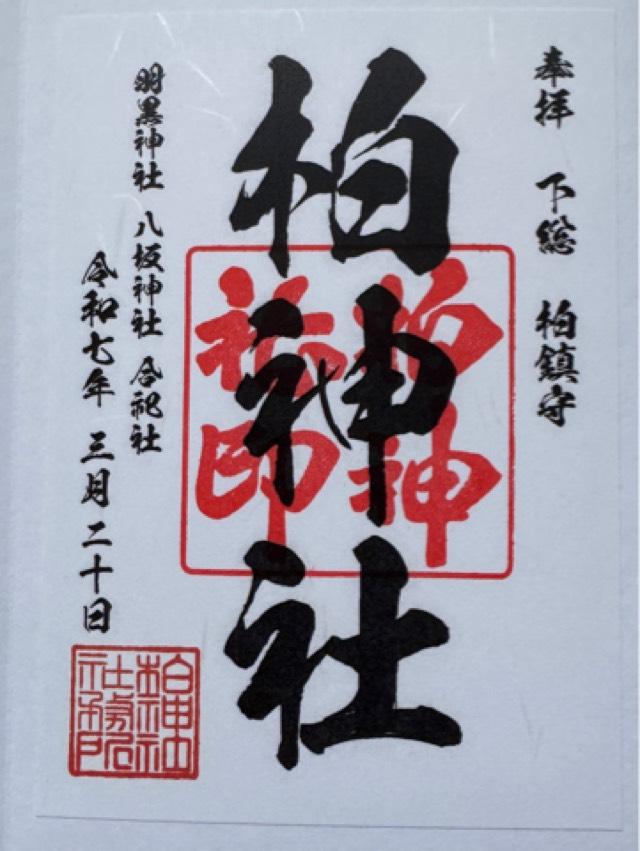 奉拝 下総 柏鎮守
柏神社
羽黒神社 八坂神社 合祀社
令和七年 三月二十日
柏神
社印